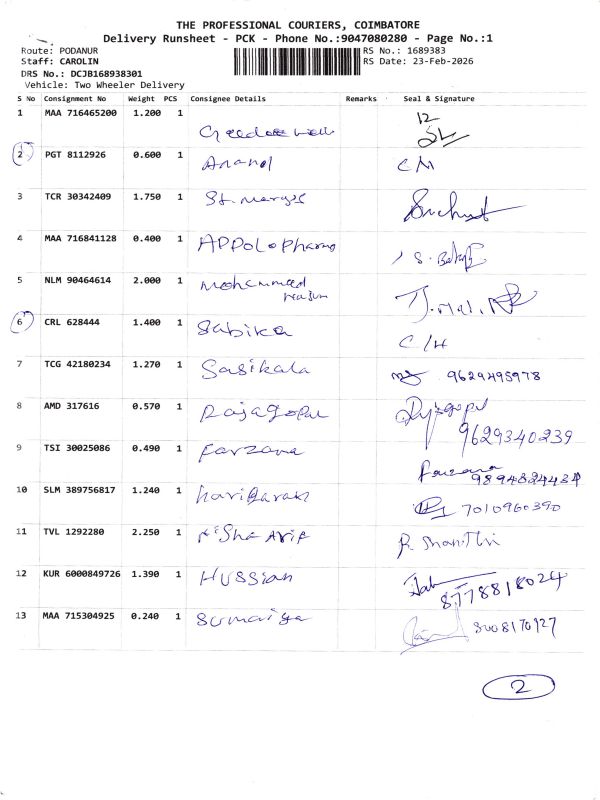 THE PROFESSIONAL COURIERS, COIMBATORE
Delivery Runsheet - PCK - Phone No.:9047080280 - Page No.:1
Route: PODANUR RS No.: 1689383
Staff: CAROLIN RS Date: 23-Feb-2026
DRS No.: DCJB168938301
Vehicle: Two Wheeler Delivery
S No Consignment No Weight PCS Consignee Details Remarks Seal & Signature
1 MAA 716465200 1.200 1 12
2 PGT 8112926 0.600 1 Anand C M
3 TCR 30342409 1.750 1 St. marys
4 MAA 716841128 0.400 1 APPolo pharma
5 NLM 90464614 2.000 1 mohammed
6 CRL 628444 1.400 1 Sabika C/H
7 TCG 42180234 1.270 1 Sasikala 9629495978
8 AMD 317616 0.570 1 Rajagopal
9629340239
9 TSI 30025086 0.490 1 Farzana Farzana
10 SLM 389756817 1.240 1 hariharan 7010960390
11 TVL 1292280 2.250 1 Nisha Arif R Shanthi
12 KUR 6000849726 1.390 1 HUSSian
8778818024
13 MAA 715304925 0.240 1 Sumaiya
2